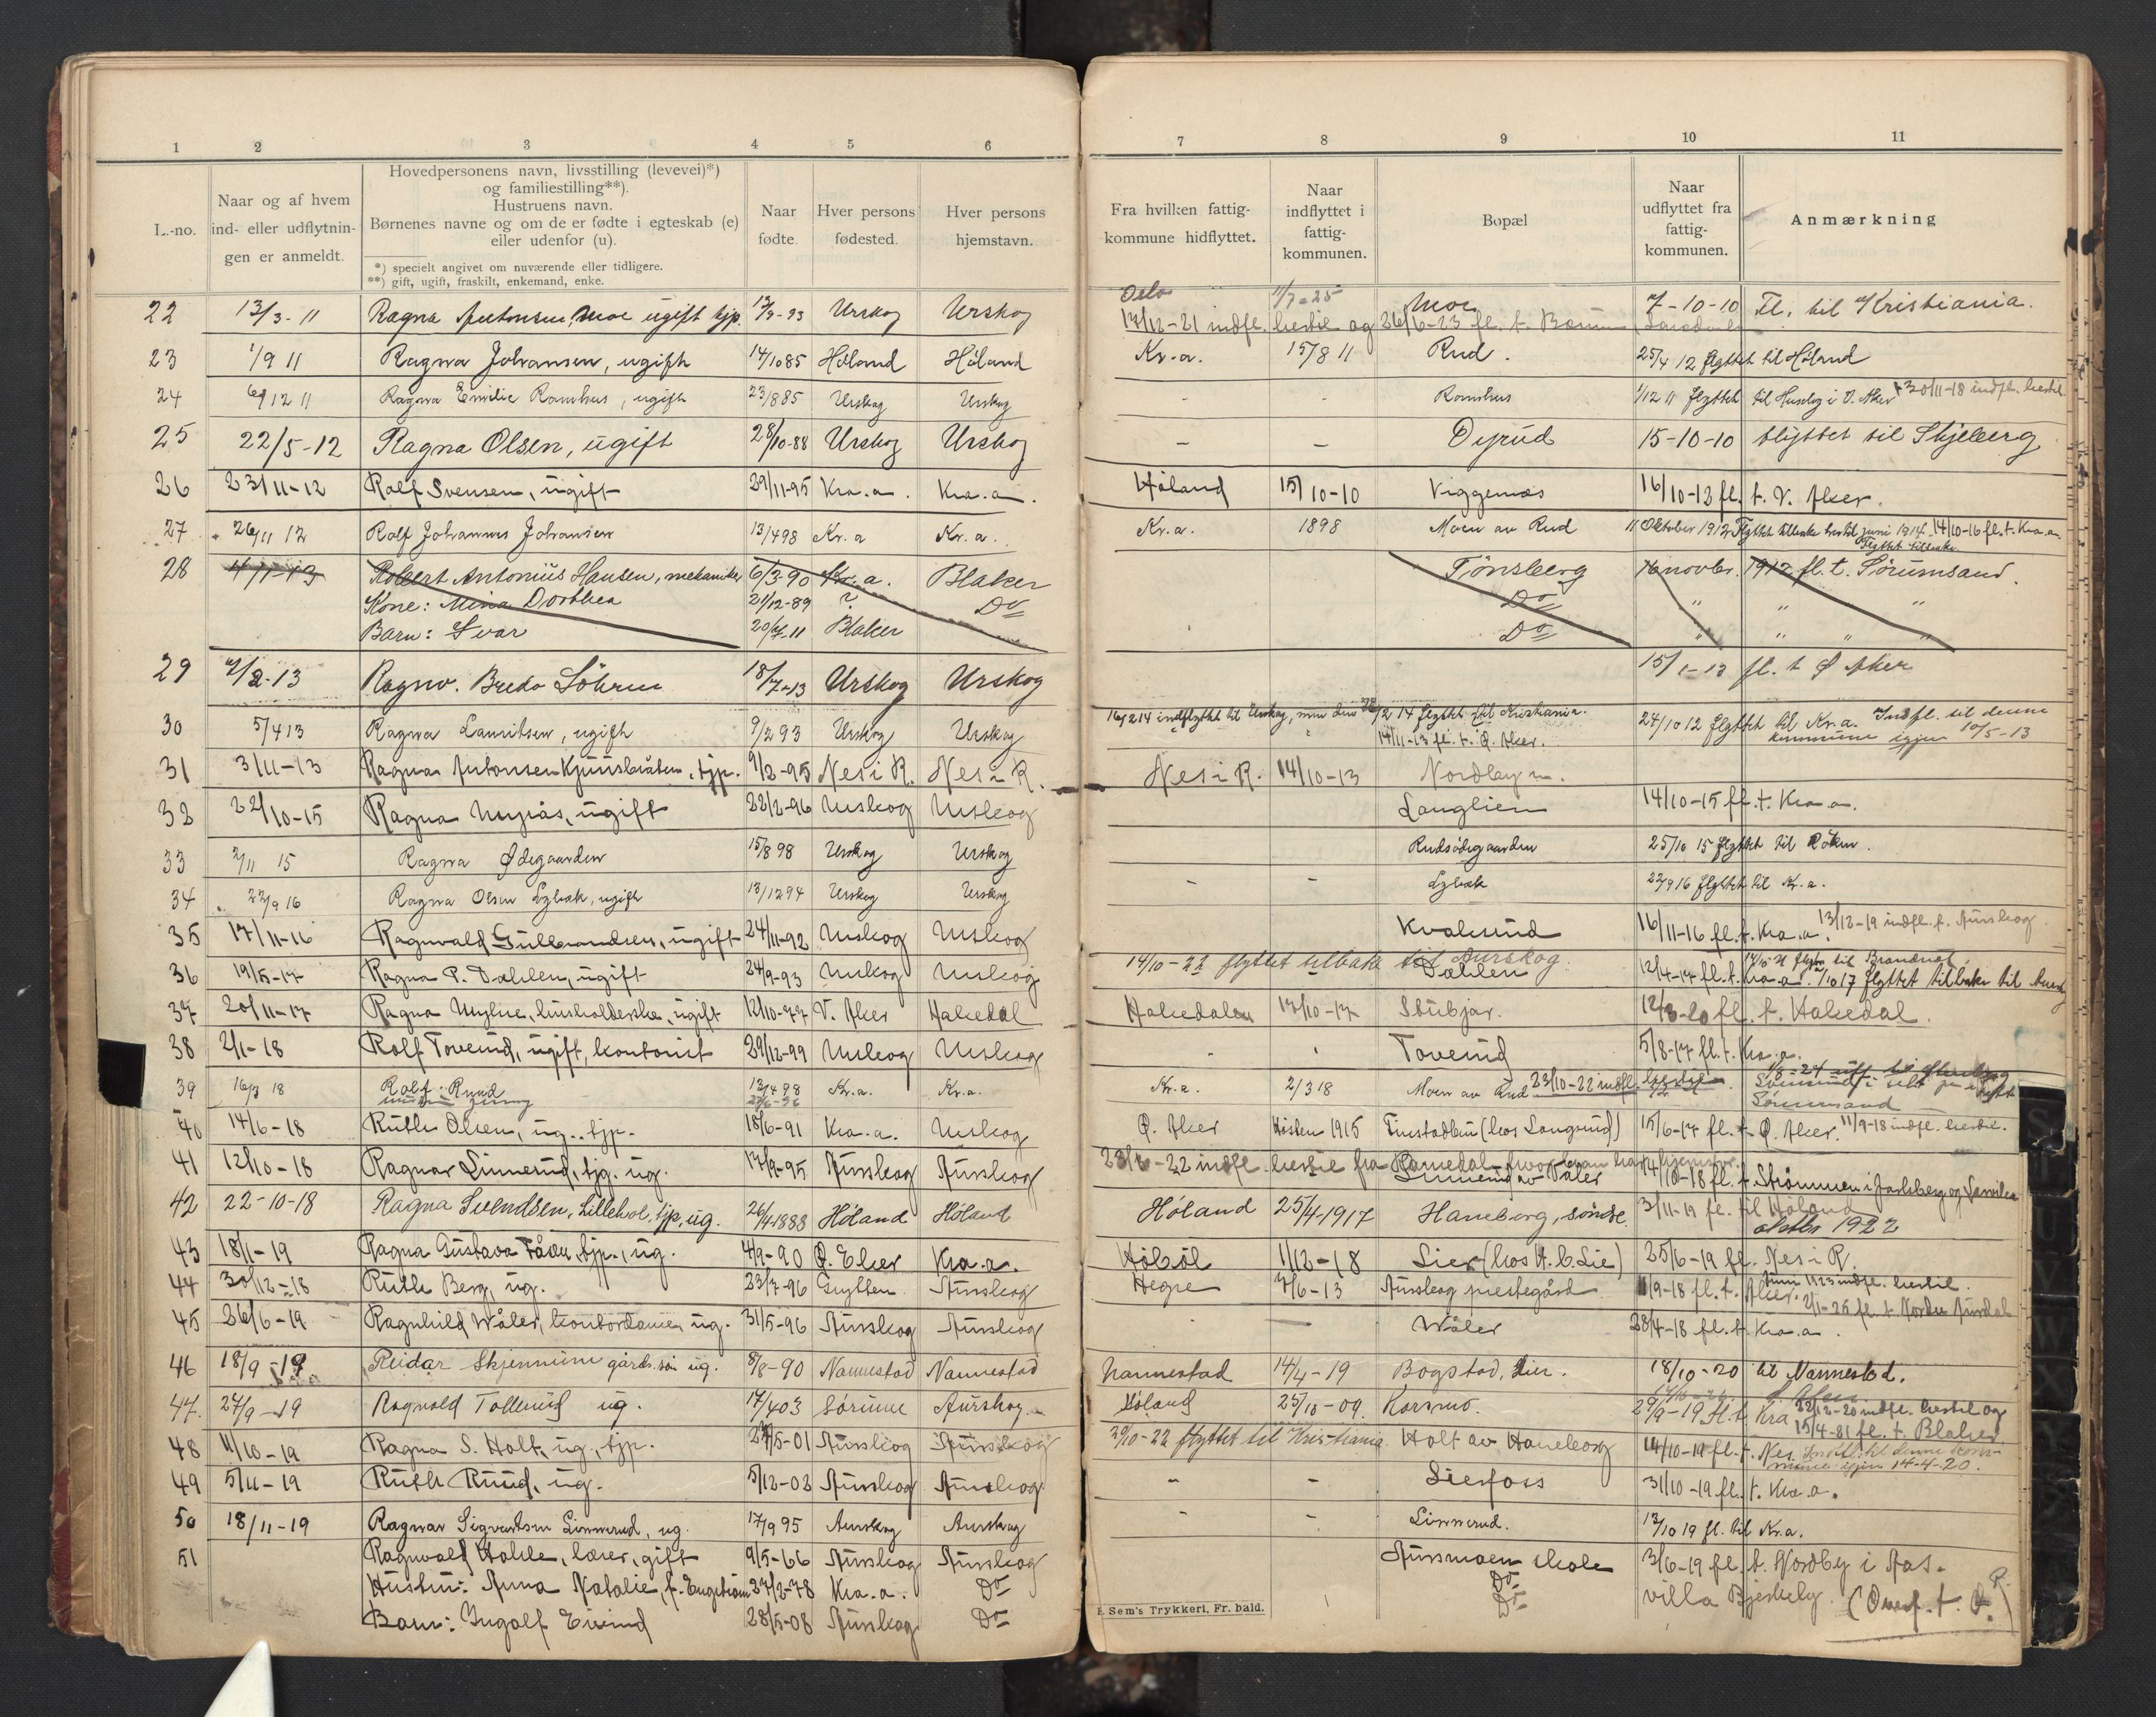 1 2 3 4 5 6 7 8 9 10 11
L.-no.
Naar og af hvem
ind- eller udflytnin-
gen er anmeldt.
Hovedpersonens navn, livsstilling (levevei)*)
og familiestilling**).
Hustruens navn.
Børnenes navne og om de er fødte i egteskab (e)
eller udenfor (u).
*) specielt angivet om nuværende eller tidligere.
**) gift, ugift, fraskilt, enkemand, enke.
Naar
fødte.
Hver persons
fødested.
Hver persons
hjemstavn.
Fra hvilken fattig-
kommune hidflyttet.
Naar
indflyttet i
fattig-
kommunen.
Bopæl
Naar
udflyttet fra
fattig-
kommunen.
Anmærkning
Oslo 1/7-25
22 13/3-11 Ragna Antonsen Moe ugift tjp. Urskog Urskog Moe 7-10-10 Fl. til Kristiania.
17/12-21 indfl. hertil og 26/6-23 fl. t. Bærum
23 1/9 11 Ragna Johansen, ugift 14/10 85 Høland Høland Kr.a. 15/8 11 Rud. 25/4 12 flyttet til Høland
24 6/12 11 Ragna Emilie Ramhus, ugift 23/8 85 Urskog Urskog - - Ramhus 1/12 11 flyttet til Huseby i V. Aker 30/11-18 indfl. hertil
25 22/5-12 Ragna Olsen, ugift 28/10-88 Urskog Urskog - - Dyrud 15-10-10 flyttet til Skjeberg
26 23/11-12 Rolf Svensen, ugift 29/11-95 Kra.a. Kra.a. Høland 15/10-10 Viggenæs 16/10-12 fl. t. V. Aker.
27 26/11 12 Rolf Johannes Johansen 13/4 98 Kr.a Kr.a. Kr.a. 1898 Moen av Rud 11 Oktober 1912 Flyttet tilbake hertil juni 1914. 14/10-16 fl. t. Kra.a.
Flyttet tilbake.
28 4/1-13 Robert Antonius Hansen, mekaniker 6/3-90 Kr.a. Blaker Tønsberg 16 novbr. 1912 fl. t. Sørumsand.
Kone: Mina Dorthea 21/12-89 ? Do Do " " "
Barn: Ivar 20/7-11 Blaker Do " " " "
29 7/2-13 Ragnv. Bredo Löhren 18/7-13 Urskog Urskog 15/1-13 fl. t Ø Aker
16/2 14 indflyttet til Urskog, men den 28/2 14 flyttet til Kristiania.
30 5/4 13 Ragna Lauritsen, ugift 9/2 93 Urskog Urskog 14/11-13 fl. t. Ø. Aker. 24/10 12 flyttet til Kr.a. Indfl. til denne
kommune igjen 10/5-13
31 3/11-13 Ragna Antonsen Kjuusbråten, tjp. 9/2-95 Nes i R. Nes i R. Nes i R. 14/10-13 Nordby n.
32 22/10-15 Ragna Myrås, ugift 22/2-96 Urskog Urskog Langlien 14/10-15 fl. t. Kra.a.
33 2/11 15 Ragna Ødegaarden 15/8 98 Urskog Urskog Rudsødegaarden 25/10 15 flyttet til Røken.
34 22/9 16 Ragna Olsen Lybæk, ugift 13/12 94 Urskog Urskog - - Lybæk 22/9 16 flyttet til Kr.a.
35 17/11-16 Ragnvald Gulbrandsen, ugift 24/11-92 Urskog Urskog Kvalsund 16/11-16 fl. t. Kra.a. 13/12-19 indfl. t. Aurskog
14/10-22 flyttet tilbake til Aurskog.
36 19/5-17 Ragna P. Dahlen, ugift 24/9-93 Urskog Urskog Dahlen 12/4-17 fl. t. Kra.a. 1/10 17 flyttet tilbake til
37 20/11-17 Ragna Myhre, husholderske, ugift 12/10-77 V. Aker Hakedal Hakedalen 17/10-17 Stubjar. 12/3-20 fl. t. Hakedal.
38 2/1-18 Rolf Toverud, ugift, kontorist 29/12-99 Urskog Urskog Toverud 5/8-17 fl. t. Kra.a.
39 16/3 18 Rolf Ruud 13/4 98 Kr.a. Kr.a. Kr.a. 2/3 18 Moen av Rud 23/10-22 indfl.
Sørumsand
40 14/6-18 Ruth Olsen, ug., tjp. 18/6-91 Kra.a. Urskog Ø. Aker Høsten 1915 Finstadbru (hos Langsrud) 15/6-17 fl. t. Ø. Aker. 11/9-18 indfl. hertil.
41 12/10-18 Ragnar Linnerud, tjg. ug. 17/9-95 Aurskog Aurskog Linnerud av Våler 14/10-18 fl. t. Strømmen i Jarlsberg og Larvik
42 22-10-18 Ragna Svendsen, Lillehol, tjp, ug. 26/4-1888 Høland Høland Høland 25/4-1917 Haneborg, søndre. 3/11-19 fl. til Høland
oktbr 1922
43 18/1-19 Ragna Gustava Fåou, tjp., ug. 4/9-90 Ø. Eker Kra.a. Høbøl 1/12-18 Lier (hos H. C. Lie) 25/6-19 fl. Nes i R.
44 30/12-18 Ruth Berg, ug. 23/7-96 Grytten Aurskog Hegre 7/6-13 Aurskog prestegård 11/9-18 fl. t. Aker. indfl. hertil.
45 26/6-19 Ragnhild Wåler, kontordame, ug. 31/5-96 Aurskog Aurskog — Wåler 28/4-18 fl. t. Kra.a. 2/1-25 fl. t. Nordre Aurdal
46 18/9-19 Reidar Skjennum gårds.søn ug. 8/8-90 Nannestad Nannestad Nannestad 14/4-19 Bogstad, Lier. 18/10-20 til Nannestad.
47. 27/9-19 Ragnvald Tollerud ug. 17/4 03 Sørum Aurskog Høland 25/10-09. Korsmo. 29/9-19 fl. t. Kra 22/12-20 indfl. hertil og
15/4-21 fl. t. Blaker
30/10-22 flyttet til Kristiania.
48 11/10-19 Ragna S. Holt, ug., tjp. 27/5-01 Aurskog Aurskog Holt av Haneborg 14/10-19 fl. t. Nes. Indfl. til denne kom-
mune igjen 14-4-20.
49 5/11-19 Ruth Ruud, ug. 5/12-02 Aurskog Aurskog - - Lierfoss 31/10-19 fl. t. Kra.a.
50 18/11-19 Ragnar Sigvartsen Linnerud, ug. 17/9 95 Aurskog Aurskog - - Linnerud. 13/10 19 fl. til Kr.a.
51 Ragnvald Hohle, lærer, gift 9/5-66 Aurskog Aurskog Aursmoen skole 3/6-19 fl. t. Nordby i Aas.
Hustru: Anna Natalie, f. Engstrøm 27/2-78 Kra.a. Do Do villa Bjerkely. (Overf. t. Ø.)
Barn: Ingolf Eivind 28/5-08 Aurskog Do Do
E. Sem's Trykkeri, Fr. hald.
S
U
V
W
X